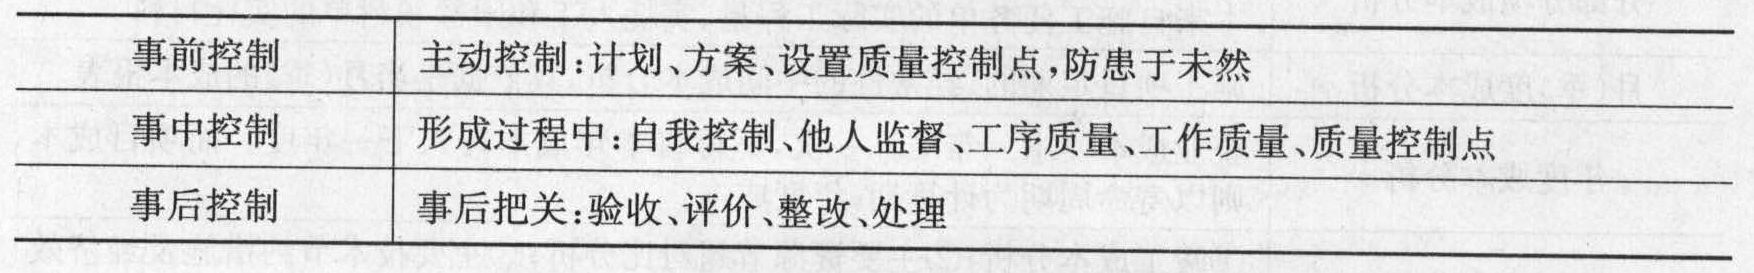 事前控制 主动控制:计划、方案、设置质量控制点,防患于未然
事中控制 形成过程中:自我控制、他人监督、工序质量、工作质量、质量控制点
事后控制 事后把关:验收、评价、整改、处理